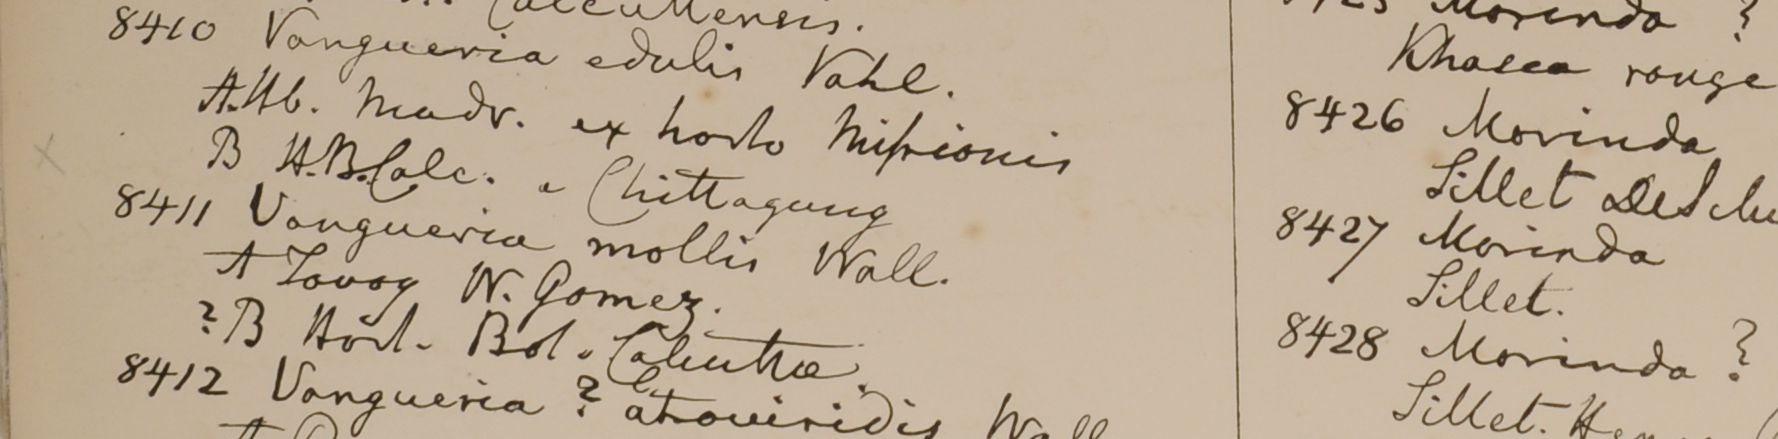 Calcuttensis.
8410 Vangueria edulis Vahl.
A. Hb. Madr. ex horto Missionis
B H.B. Calc. e Chittagung
8411 Vangueria mollis Wall.
A Tavoy W. Gomez.
? B Hort. Bot. Calcuttæ.
8412 Vangueria ? atroviridis Wall
Morinda ?
Khasea
8426 Morinda
Sillet
8427 Morinda
Sillet.
8428 Morinda ?
Sillet.